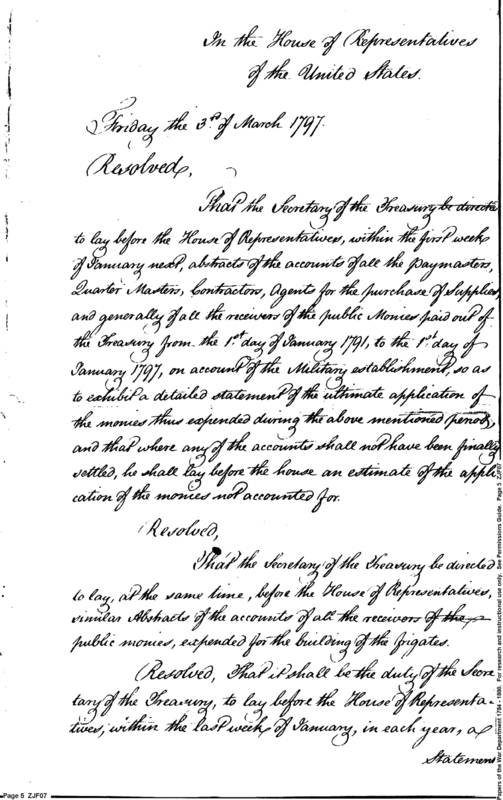 In the House of Representatives
of the United States.
Friday the 3rd of March 1797.
Resolved,
That the Secretary of the Treasury be directed
to lay before the House of Representatives, within the first week
of January next, abstracts of the accounts of all the paymasters,
Quarter Masters, Contractors, Agents for the purchase of Supplies
and generally of all the receivers of the public Monies paid out of
the Treasury from the 1st day of January 1791, to the 1st day of
January 1797, on account of the Military establishment, so as
to exhibit a detailed statement of the ultimate application of
the monies thus expended during the above mentioned period,
and that where any of the accounts shall not have been finally
settled, he shall lay before the house an estimate of the appli
cation of the monies not accounted for.
Resolved,
That the Secretary of the Treasury be directed
to lay, at the same time, before the House of Representatives,
similar Abstracts of the accounts of all the receivers of the
public monies, expended for the building of the frigates.
Resolved, That it shall be the duty of the Secre
tary of the Treasury, to lay before the House of Representa-
tives, within the last week of January, in each year, a
Statement
Papers of the War Department 1784 - 1800. For research and instructional use only. See Permissions Guide. Page 5 ZJF07
Page 5 ZJF07